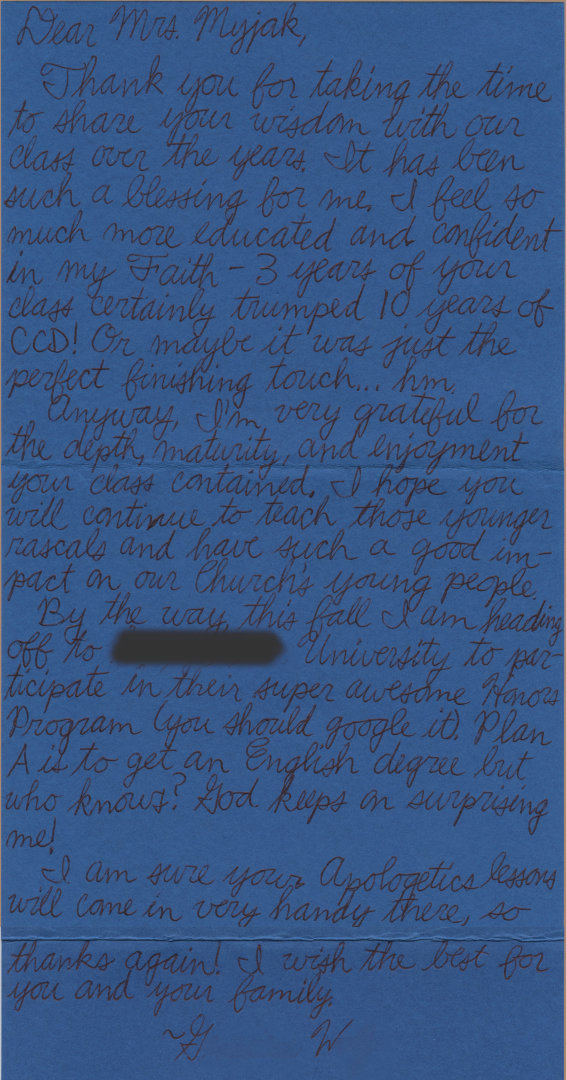 Dear Mrs. Myjak,
Thank you for taking the time
to share your wisdom with our
class over the years. It has been
such a blessing for me. I feel so
much more educated and confident
in my Faith - 3 years of your
class certainly trumped 10 years of
CCD! Or maybe it was just the
perfect finishing touch... hm.
Anyway, I'm very grateful for
the depth, maturity, and enjoyment
your class contained. I hope you
will continue to teach those younger
rascals and have such a good im-
pact on our Church's young people.
By the way, this fall I am heading
off to University to par-
ticipate in their super awesome Honors
Program (you should google it). Plan
A is to get an English degree but
who knows? God keeps on surprising
me!
I am sure your Apologetics lessons
will come in very handy there, so
thanks again! I wish the best for
you and your family.
~G W